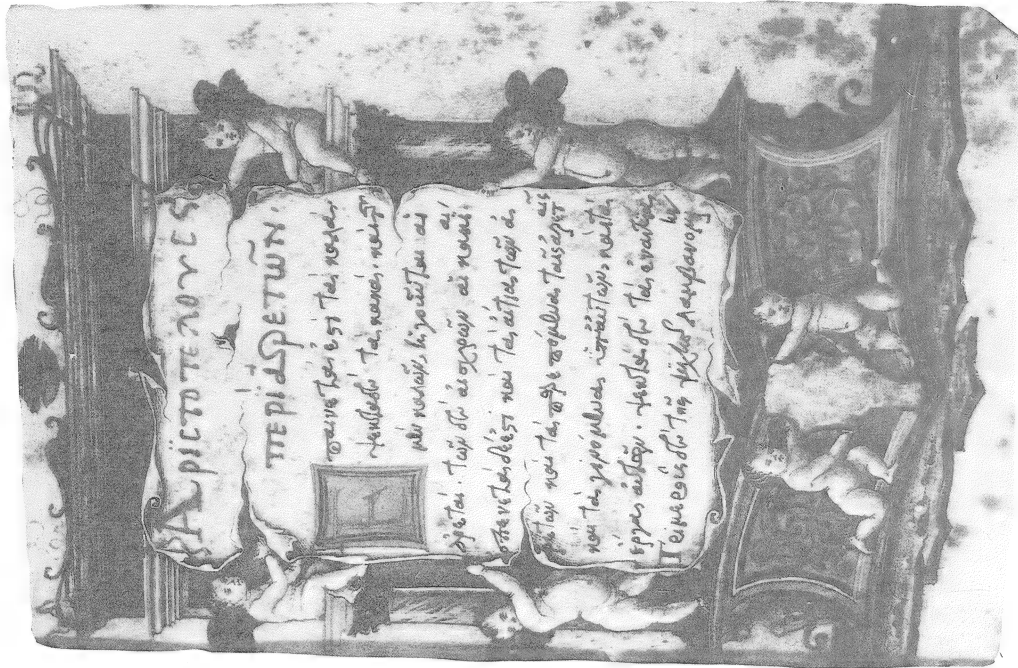 Ἀριστοτέλους
περὶ ἀρετῶν.
παινετὰ ἐστὶ τὰ καλὰ
ψεκτὰ δὲ τὰ κακά. καὶ τῶν
μὲν καλῶν ἡγοῦνται αἱ
ἀρεταί. τῶν δὲ αἰσχρῶν αἱ κακίαι
ἐπαινετὰ δέ ἐστι καὶ τὰ αἴτια τῶν ἀ
ρετῶν καὶ τὰ παρεπόμενα ταῖς ἀρεταῖς
καὶ τὰ γινόμενα ὑπ' αὐτῶν καὶ τὰ
ἔργα αὐτῶν. ψεκτὰ δὲ τὰ ἐναντία
τῆς ψυχῆς λαμβανομένης